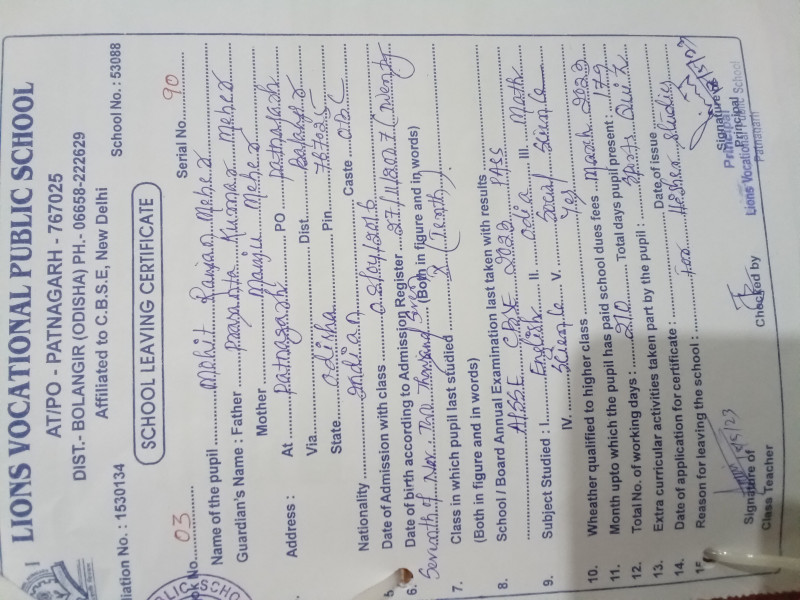 LIONS VOCATIONAL PUBLIC SCHOOL
AT/PO - PATNAGARH - 767025
DIST.- BOLANGIR (ODISHA) PH.- 06658-222629
Affiliated to C.B.S.E, New Delhi
iation No. : 1530134 School No. : 53088
SCHOOL LEAVING CERTIFICATE
ok No. 03 Serial No. 90
Name of the pupil Mohit Ranjan Meher
Guardian's Name : Father Prasanta Kumar Meher
Mother Manju Meher
Address : At Patnagarh PO Patnagarh
Via. Dist. Balangir
State Odisha Pin. 767025
Nationality Indian Caste O.B.C
5. Date of Admission with class 02/04/2016
6. Date of birth according to Admission Register 27/11/2007 (Twenty
Seventh of Nov. Two Thousand Seven (Both in figure and in words)
7. Class in which pupil last studied X (Tenth)
(Both in figure and in words)
8. School / Board Annual Examination last taken with results
AISSE CBSE 2023 PASS
9. Subject Studied : I. English II. Odia III. Math
IV. Science V. Social Science
10. Wheather qualified to higher class Yes
11. Month upto which the pupil has paid school dues fees March 2023
12. Total No. of working days : 210 Total days pupil present : 179
13. Extra curricular activities taken part by the pupil : Sports Quiz
14. Date of application for certificate : Date of issue
15 Reason for leaving the school : For Higher Studies
Signature of
Class Teacher
Checked by
Signature of
Principal
Principal
Lions Vocational Public School
Patnagarh